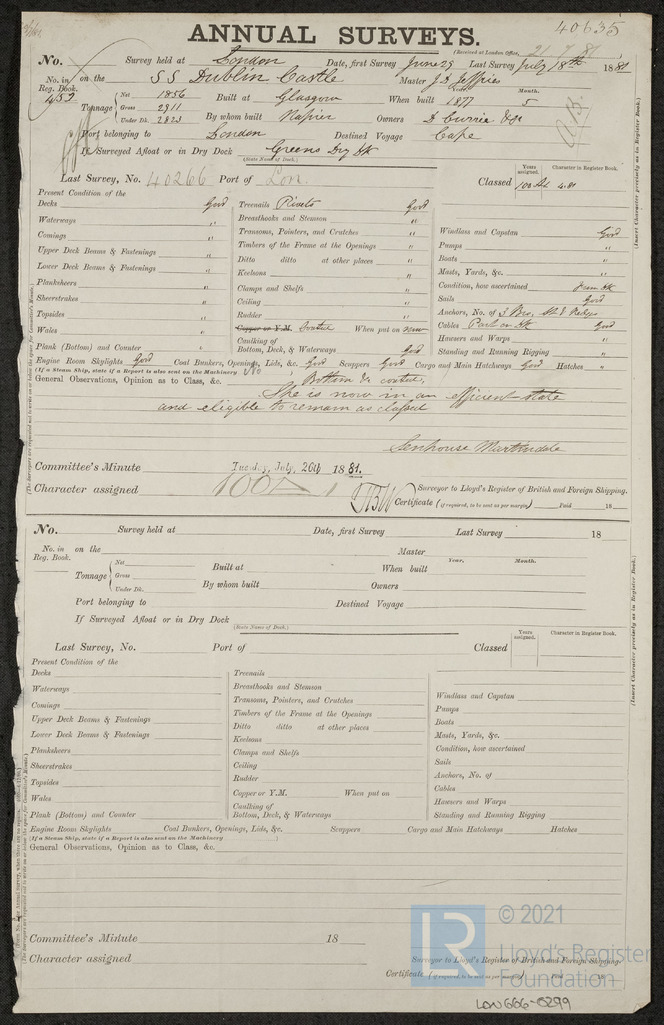 40635
ANNUAL SURVEYS.
(Received at London Office, 21.7.81)
No. Survey held at London Date, first Survey June 29 Last Survey July 18th 1881
No. in Reg. Book. 452 on the SS Dublin Castle Master J. S. Jeffries
Tonnage Net 1856 Gross 2911 Under Dk. 2823 Built at Glasgow When built Year. 1877 Month. 5
By whom built Napier Owners D Currie & Co
Port belonging to London Destined Voyage Cape
If Surveyed Afloat or in Dry Dock Greens Dry Dk
(State Name of Dock.)
Last Survey, No. 40266 Port of Lon. Classed Years assigned. 100A Character in Register Book. 4.81
(Insert Character precisely as in Register Book.)
Present Condition of the
Decks Good Treenails Rivets Good
Waterways " Breasthooks and Stemson " Windlass and Capstan Good
Comings " Transoms, Pointers, and Crutches " Pumps "
Upper Deck Beams & Fastenings " Timbers of the Frame at the Openings " Boats "
Lower Deck Beams & Fastenings " Ditto ditto at other places " Masts, Yards, &c. "
Planksheers " Keelsons " Condition, how ascertained from dk
Sheerstrakes " Clamps and Shelfs " Sails Good
Topsides " Ceiling " Anchors, No. of 3 Bro,
Wales " Rudder " Cables Part on dk Good
Copper or Y.M. When put on now Hawsers and Warps "
Plank (Bottom) and Counter " Caulking of Bottom, Deck, & Waterways Good Standing and Running Rigging "
Engine Room Skylights Good Coal Bunkers, Openings, Lids, &c. Good Scuppers Good Cargo and Main Hatchways Good Hatches "
(If a Steam Ship, state if a Report is also sent on the Machinery
General Observations, Opinion as to Class, &c. Bottom
She is now in an efficient state
and eligible to remain as classed
Senhouse Martindale
Committee's Minute Tuesday, July, 26th 1881.
Character assigned 100A 1
Surveyor to Lloyd's Register of British and Foreign Shipping.
Certificate (if required, to be sent as per margin) Paid 18
No. Survey held at Date, first Survey Last Survey 18
No. in Reg. Book. on the Master
Tonnage Net Gross Under Dk. Built at When built Year. Month.
By whom built Owners
Port belonging to Destined Voyage
If Surveyed Afloat or in Dry Dock
(State Name of Dock.)
Last Survey, No. Port of Classed Years assigned. Character in Register Book.
(Insert Character precisely as in Register Book.)
Present Condition of the
Decks Treenails
Waterways Breasthooks and Stemson Windlass and Capstan
Comings Transoms, Pointers, and Crutches Pumps
Upper Deck Beams & Fastenings Timbers of the Frame at the Openings Boats
Lower Deck Beams & Fastenings Ditto ditto at other places Masts, Yards, &c.
Planksheers Keelsons Condition, how ascertained
Sheerstrakes Clamps and Shelfs Sails
Topsides Ceiling Anchors, No. of
Wales Rudder Cables
Copper or Y.M. When put on Hawsers and Warps
Plank (Bottom) and Counter Caulking of Bottom, Deck, & Waterways Standing and Running Rigging
Engine Room Skylights Coal Bunkers, Openings, Lids, &c. Scuppers Cargo and Main Hatchways Hatches
(If a Steam Ship, state if a Report is also sent on the Machinery )
General Observations, Opinion as to Class, &c.
Committee's Minute 18
Character assigned
Surveyor to Lloyd's Register of British and Foreign Shipping.
Certificate (if required, to be sent as per margin) Paid 18
LR © 2021
Lloyd's Register
Foundation
LON666-0299